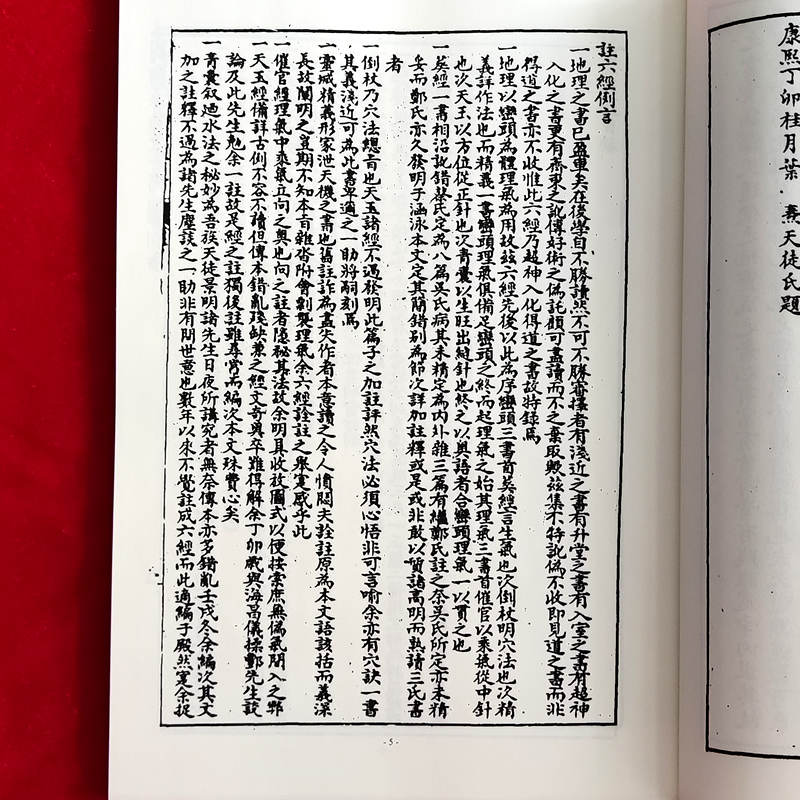 康熙丁卯桂月葉·燾天徒氏題
註六經例言
一地理之書已盈車矣在後學自不勝讀然不可不勝審擇者有淺近之書有升堂之書有入室之書有超神
入化之書更有齊東之說傳好術之偽託顧可盡讀而不之棄取歟兹集不特訛偽不收即見道之書而非
得道之書亦不收惟此六經乃超神入化得道之書故特錄焉
一地理以巒頭為體理氣為用故兹六經先後以此為序巒頭三書首葬經言生氣也次倒杖明穴法也次精
義詳作法也而精義一書巒頭理氣俱備足巒頭之終而起理氣之始其理氣三書首催官以乘氣從中針
也次天玉以方位從正針也次青囊以生旺出縫針也終之以奧語者合巒頭理氣一以貫之也
一葬經一書相沿訛錯蔡氏定為八篇吳氏病其未精定為內外雜三篇有繼鄭氏註之奈吳氏所定亦未精
妥而鄭氏亦欠發明予涵泳本文定其簡錯別為節次詳加註釋或是或非敢以質諸高明而熟讀三氏書
者
一倒杖乃穴法總旨也天玉諸經不過發明此篇子之加註評然穴法必須心悟非可言喻余亦有穴訣一書
其義淺近可為此書卑邇之一助將嗣刻焉
一靈城精義形家泄天機之書也舊註詐為盡失作者本意讀之令人憤悶夫詮註原為本文語該括而義深
長故闡明之豈期不知本旨雜沓附會剿襲理氣余六經詮註之舉寔感乎此
一催官經理氣中乘氣立向之奧也向之註者隱秘其法故余明具收放圖式以便按索庶無偽氣闌入之弊
一天玉經備詳古例不容不讀但傳本錯亂殘缺兼之經文奇與卒難得解余丁卯歲與海昌儀揉鄭先生談
論及此先生勉余一註故是經之註獨後註雖尋常而編次本文殊費心矣
一青囊叙迺水法之秘妙為吾族天徒景明諸先生日夜所講究者無奈傳本亦多錯亂壬戌冬余編次其文
加之註釋不過為諸先生塵談之一助非有問世意也數年以來不覺註成六經而此適編于殿然寔余捉
-5-